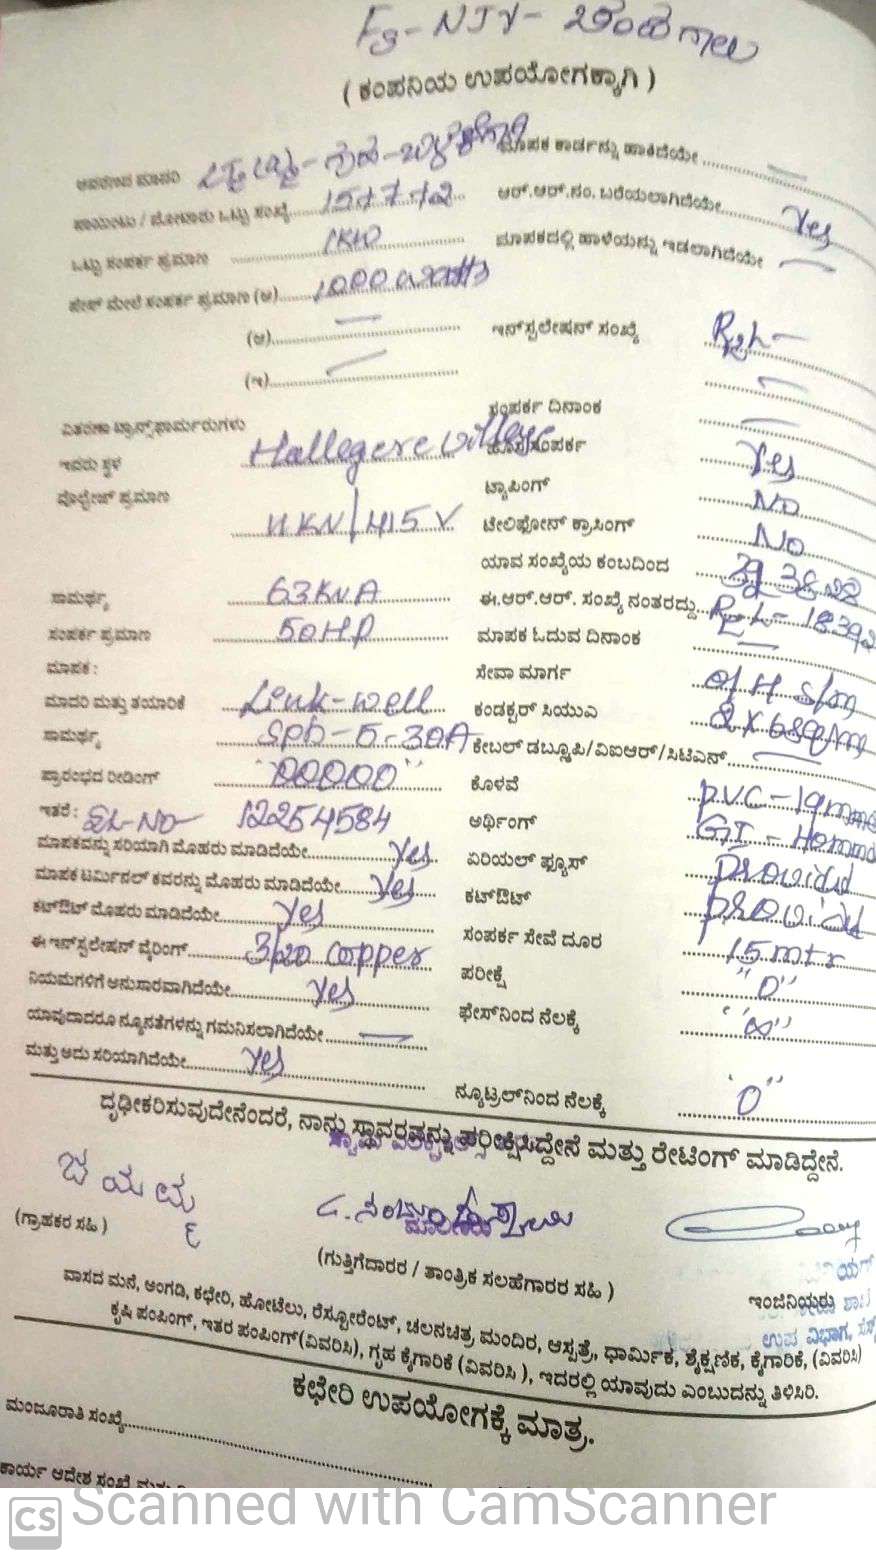 F3-NJY-
( ಕಂಪನಿಯ ಉಪಯೋಗಕ್ಕಾಗಿ )
ಮಾಪಕ ಕಾರ್ಡನ್ನು ಹಾಕಿದೆಯೇ
ಒಟ್ಟು ಸಂಖ್ಯೆ 15+7+2 ಆರ್.ಆರ್.ನಂ. ಬರೆಯಲಾಗಿದೆಯೇ Yes
ಒಟ್ಟು ಸಂಪರ್ಕ ಪ್ರಮಾಣ 1KW ಮಾಪಕದಲ್ಲಿ ಹಾಳೆಯನ್ನು ಇಡಲಾಗಿದೆಯೇ —
ಮೇಲೆ ಸಂಪರ್ಕ ಪ್ರಮಾಣ (ಅ) 1000 watts
(ಆ) — ಇನ್‌ಸ್ಟಲೇಷನ್ ಸಂಖ್ಯೆ
(ಇ) —
ವಿತರಣಾ ಟ್ರಾನ್ಸ್‌ಫಾರ್ಮರುಗಳು ಸಂಪರ್ಕ ದಿನಾಂಕ —
ಇದರು ಸ್ಥಳ Hallegere village ಸಂಪರ್ಕ Yes
ವೊಲ್ಟೇಜ್ ಪ್ರಮಾಣ ಟ್ಯಾಪಿಂಗ್ NO
11KV/415V ಟೇಲಿಫೋನ್ ಕ್ರಾಸಿಂಗ್ NO
ಯಾವ ಸಂಖ್ಯೆಯ ಕಂಬದಿಂದ
ಸಾಮರ್ಥ್ಯ 63KVA ಈ.ಆರ್.ಆರ್. ಸಂಖ್ಯೆ ನಂತರದ್ದು
ಸಂಪರ್ಕ ಪ್ರಮಾಣ 50HP ಮಾಪಕ ಓದುವ ದಿನಾಂಕ —
ಮಾಪಕ : ಸೇವಾ ಮಾರ್ಗ O/H S/m
ಮಾದರಿ ಮತ್ತು ತಯಾರಿಕೆ Link-well ಕಂಡಕ್ಟರ್ ಸಿಯುಎ 2x6sqmm
ಸಾಮರ್ಥ್ಯ 5-30A ಕೇಬಲ್ ಡಬ್ಲೂಪಿ/ವಿಐಆರ್/ಸಿಟಿಎಸ್ —
ಪ್ರಾರಂಭದ ರೀಡಿಂಗ್ "00000" ಕೊಳವೆ PVC-19mm
ಇತರೆ : SL-NO- 12254584 ಅರ್ಥಿಂಗ್ GI-
ಮಾಪಕವನ್ನು ಸರಿಯಾಗಿ ಮೊಹರು ಮಾಡಿದೆಯೇ Yes ಏರಿಯಲ್ ಫ್ಯೂಸ್ Provided
ಮಾಪಕ ಟರ್ಮಿನಲ್ ಕವರನ್ನು ಮೊಹರು ಮಾಡಿದೆಯೇ Yes ಕಟ್‌ಔಟ್ Provided
ಕಟ್‌ಔಟ್ ಮೊಹರು ಮಾಡಿದೆಯೇ Yes ಸಂಪರ್ಕ ಸೇವೆ ದೂರ 15mtr
ಈ ಇನ್‌ಸ್ಟಲೇಷನ್ ವೈರಿಂಗ್ 3/20 copper ಪರೀಕ್ಷೆ "0"
ನಿಯಮಗಳಿಗೆ ಅನುಸಾರವಾಗಿದೆಯೇ Yes ಫೇಸ್‌ನಿಂದ ನೆಲಕ್ಕೆ "∞"
ಯಾವುದಾದರೂ ನ್ಯೂನತೆಗಳನ್ನು ಗಮನಿಸಲಾಗಿದೆಯೇ —
ಮತ್ತು ಅದು ಸರಿಯಾಗಿದೆಯೇ Yes ನ್ಯೂಟ್ರಲ್‌ನಿಂದ ನೆಲಕ್ಕೆ "0"
ದೃಢೀಕರಿಸುವುದೇನೆಂದರೆ, ನಾನು ಸ್ಥಾವರವನ್ನು ಪರೀಕ್ಷಿಸಿದ್ದೇನೆ ಮತ್ತು ರೇಟಿಂಗ್ ಮಾಡಿದ್ದೇನೆ.
ಜಯಮ್ಮ
(ಗ್ರಾಹಕರ ಸಹಿ )
(ಗುತ್ತಿಗೆದಾರರ / ತಾಂತ್ರಿಕ ಸಲಹೆಗಾರರ ಸಹಿ )
ಇಂಜಿನಿಯರು
ಉಪ ವಿಭಾಗ,
ವಾಸದ ಮನೆ, ಅಂಗಡಿ, ಕಛೇರಿ, ಹೋಟೆಲು, ರೆಸ್ಟೋರೆಂಟ್, ಚಲನಚಿತ್ರ ಮಂದಿರ, ಆಸ್ಪತ್ರೆ, ಧಾರ್ಮಿಕ, ಶೈಕ್ಷಣಿಕ, ಕೈಗಾರಿಕೆ, (ವಿವರಿಸಿ)
ಕೃಷಿ ಪಂಪಿಂಗ್, ಇತರ ಪಂಪಿಂಗ್(ವಿವರಿಸಿ), ಗೃಹ ಕೈಗಾರಿಕೆ (ವಿವರಿಸಿ ), ಇದರಲ್ಲಿ ಯಾವುದು ಎಂಬುದನ್ನು ತಿಳಿಸಿರಿ.
ಕಛೇರಿ ಉಪಯೋಗಕ್ಕೆ ಮಾತ್ರ.
ಮಂಜೂರಾತಿ ಸಂಖ್ಯೆ
ಕಾರ್ಯ ಆದೇಶ ಸಂಖ್ಯೆ
CS Scanned with CamScanner